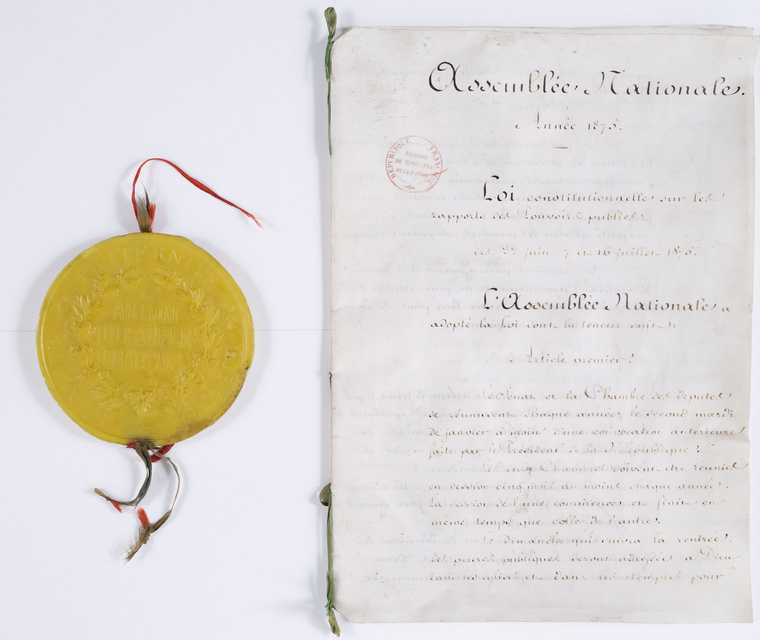 AU NOM
DU PEUPLE
FRANÇAIS
Assemblée Nationale.
Année 1875.
RÉPUBLIQUE FRANÇAISE
Loi constitutionnelle sur les
rapports des Pouvoirs publics.
juin, 7 et 16 juillet 1875.
L'Assemblée Nationale a
adopté la Loi dont la teneur suit:
Article premier.
Le Sénat et la Chambre des députés
se réunissent chaque année, le second mardi
de janvier, à moins d'une convocation antérieure
faite par le Président de la République.
Les deux Chambres doivent être réunies
en session cinq mois au moins chaque année.
La session de l'une commence et finit en
même temps que celle de l'autre.
Le dimanche qui suivra la rentrée,
des prières publiques seront adressées à Dieu
dans les églises et dans les temples pour